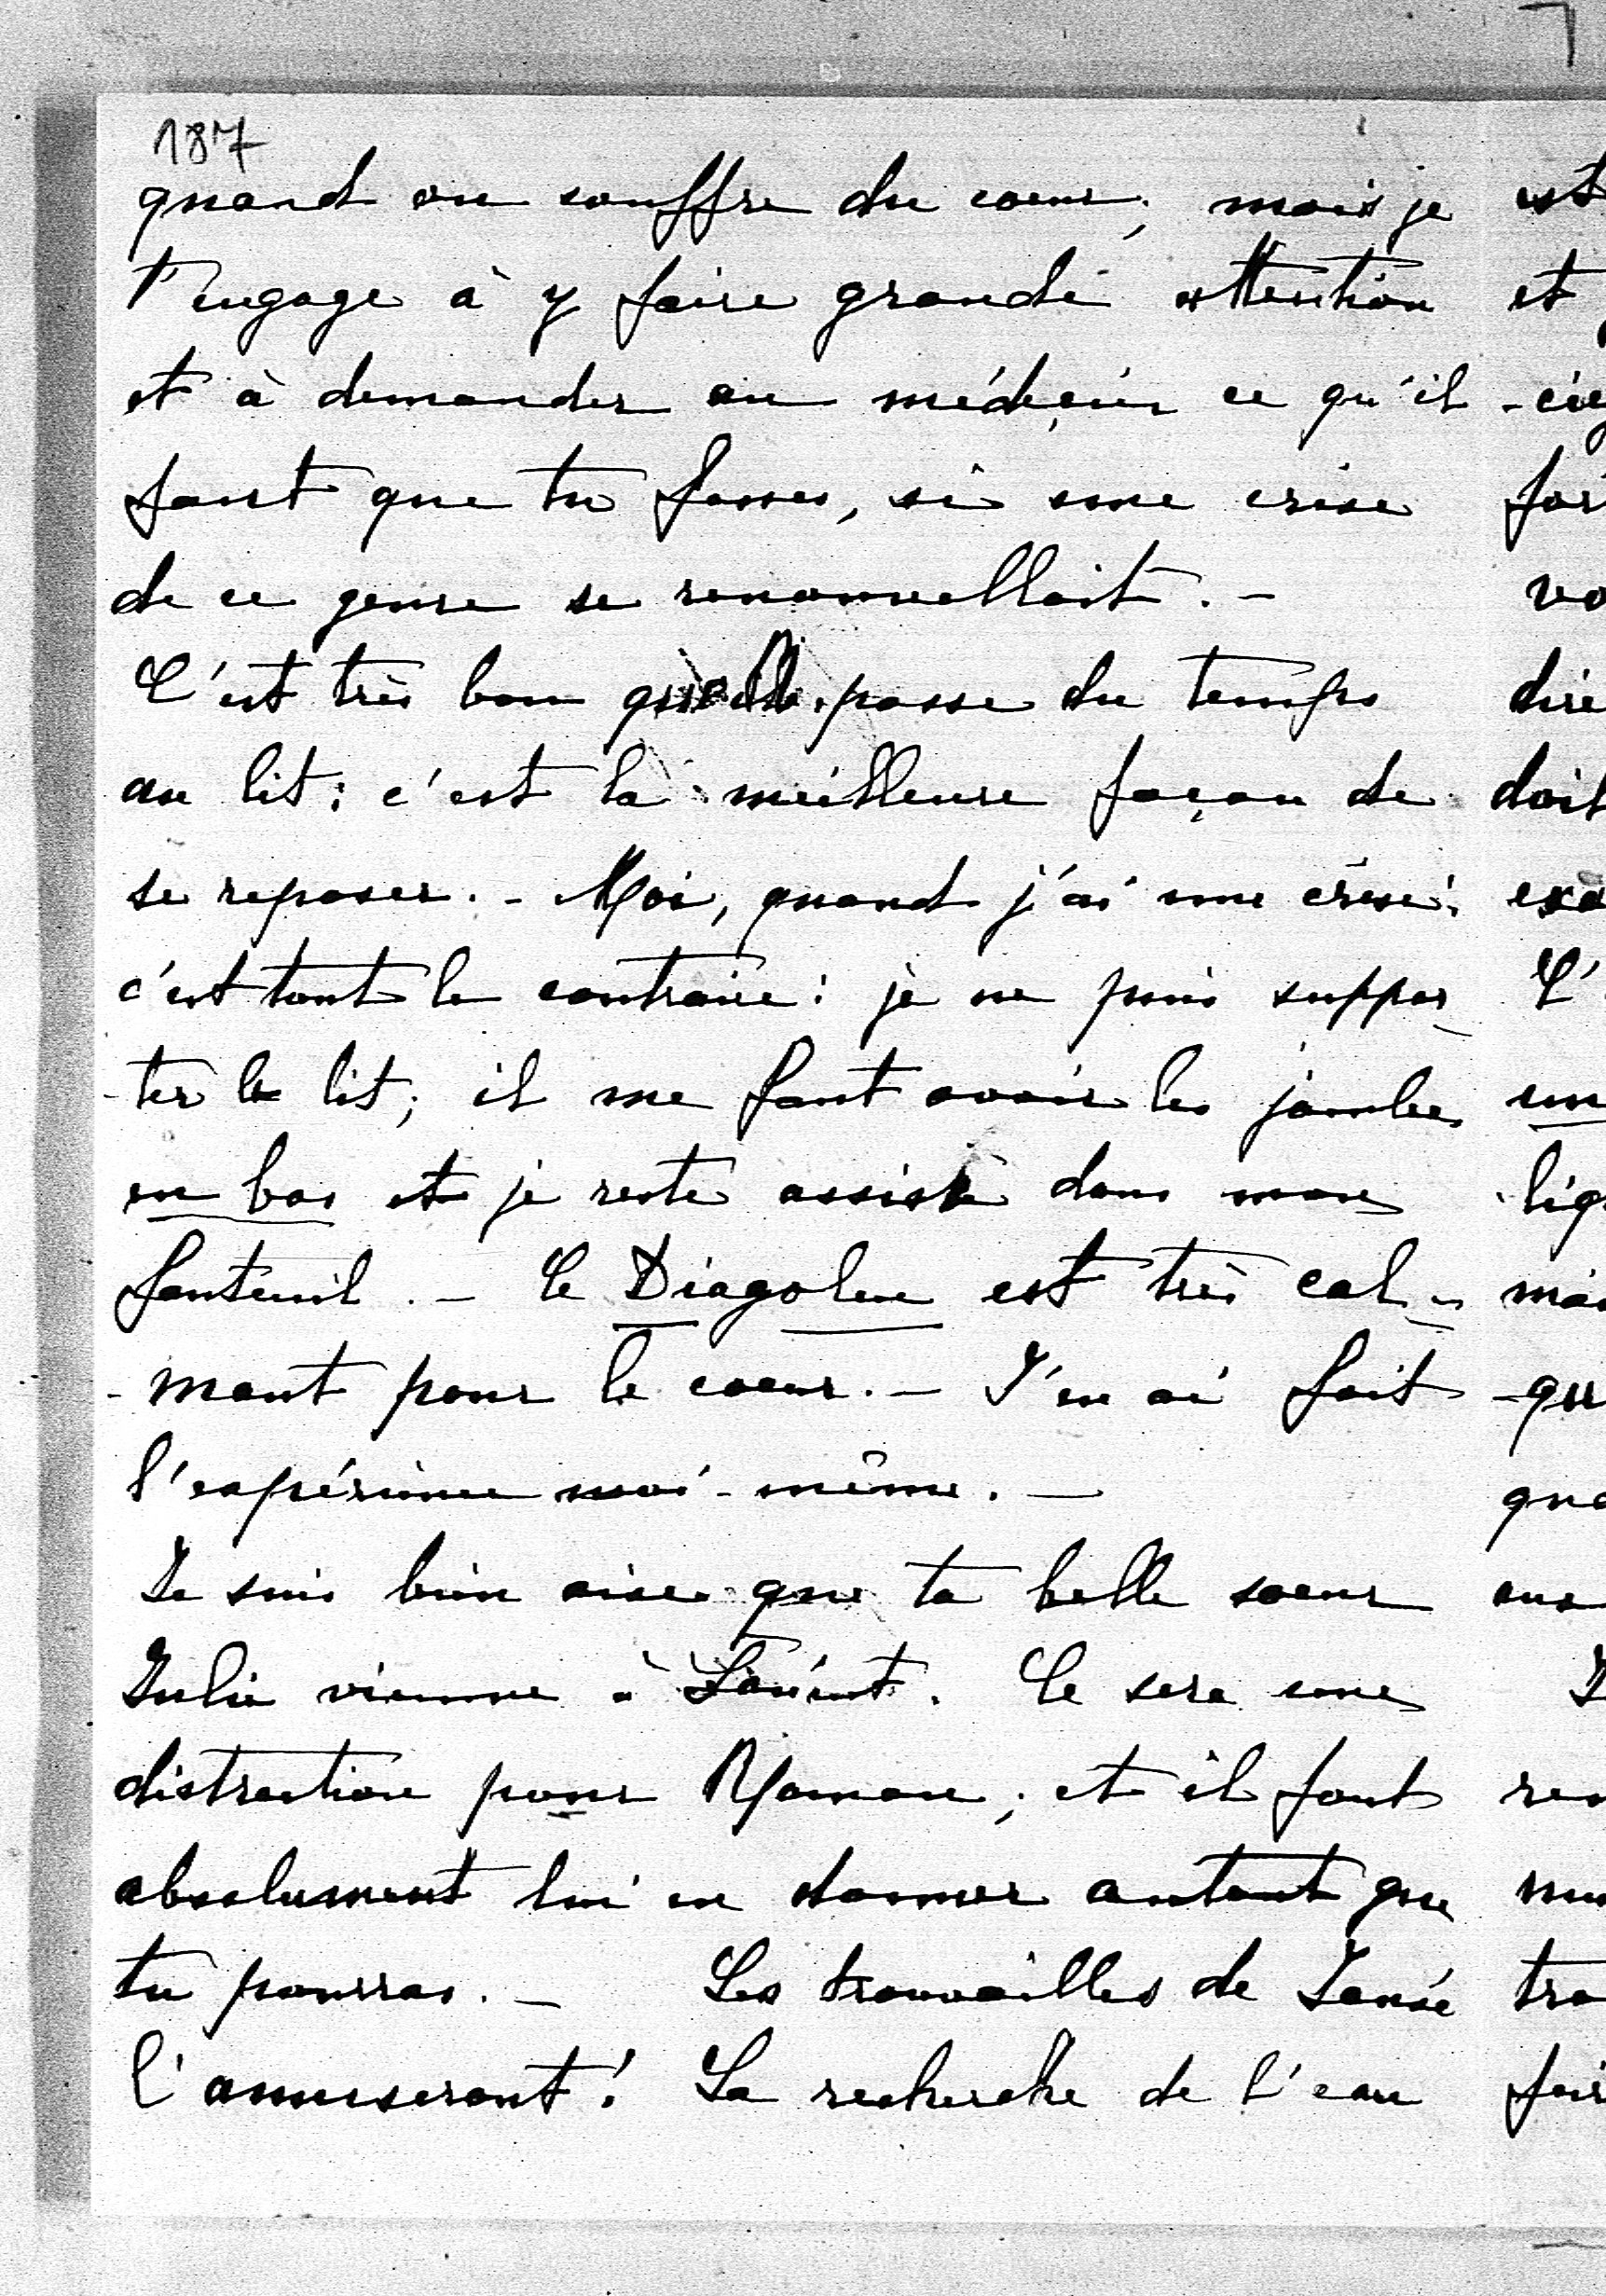 187
quand on souffre du coeur; mais je
t'engage à y faire grande attention
et à demander au médecin ce qu'il
faut que tu fasses, si une crise
de ce genre se renouvellait. -
C'est très bon qu'elle passe du temps
au lit: c'est la meilleure façon de
se reposer. - Moi, quand j'ai une crise,
c'est tout le contraire: je ne puis suppor
-ter le lit; il me faut avoir les jambes
en bas et je reste assise dans mon
fauteuil. - Le Diagolene est très cal-
-mant pour le coeur. - J'en ai fait
l'expérience moi-même. -
Je suis bien aise que ta belle soeur
Julie vienne à Lorient. Ce sera une
distraction pour Maman; et il faut
absolument lui en donner autant que
tu pourras. - Les trouvailles de Janzé
l'amuseront! La recherche de l'eau